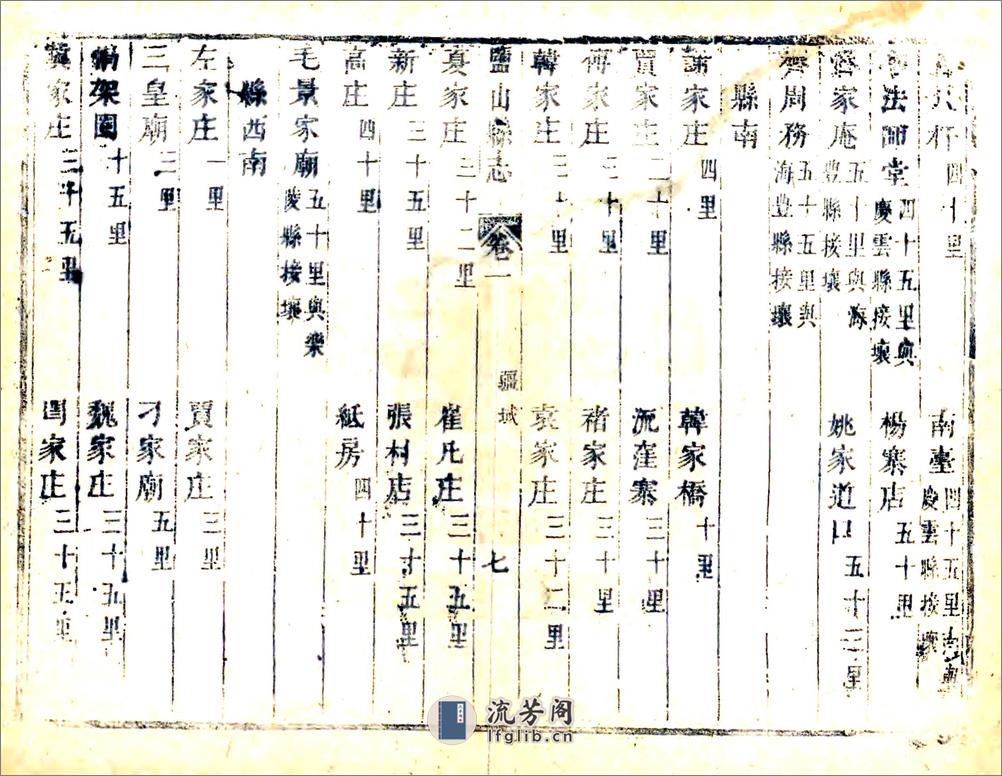 四十里 南臺 四十五里與慶雲縣接壤
法師堂 四十五里與慶雲縣接壤 楊寨店 五十里
齊家庵 五十里與海豐縣接壤 姚家道口 五十二里
齊周務 五十五里與海豐縣接壤
縣南
謝家庄 四里 韓家橋 十里
賈家庄 二十里 流窪寨 三十里
傅家庄 二十里 褚家庄 三十里
韓家庄 三十里 袁家庄 三十二里
鹽山縣志 卷一 疆域 七
真家庄 三十二里 崔凡庄 三十五里
新庄 三十五里 張村店 三十五里
高庄 四十里 紙房 四十里
毛景家廟 五十里與樂陵縣接壤
縣西南
左家庄 一里 賈家庄 三里
三皇廟 三里 刁家廟 五里
架圈 十五里 魏家庄 三十五里
家庄 三十五里 閆家庄 三十五里
流芳阁
lfglib.cn